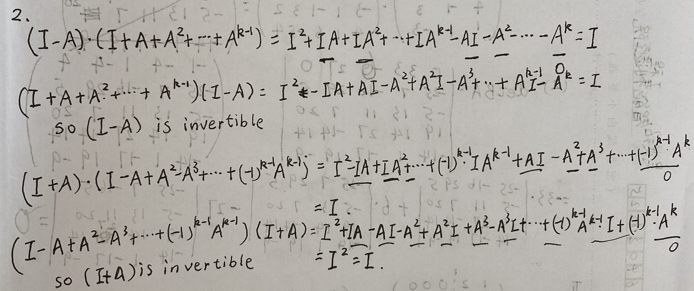 2.
(I-A)·(I+A+A²+···+A^{k-1}) = I²+IA+IA²+···+IA^{k-1}-AI-A²-···-A^k=I
0
(I+A+A²+···+A^{k-1})(I-A) = I²-IA+AI-A²+A²I-A³+···+A^{k-1}I-A^k=I
so (I-A) is invertible
(I+A)·(I-A+A²-A³+···+(-1)^{k-1}A^{k-1}) = I²-IA+IA²+···+(-1)^{k-1}·IA^{k-1}+AI-A²+A³+···+(-1)^{k-1}A^k
0
=I
(I-A+A²-A³+···+(-1)^{k-1}A^{k-1})(I+A)=I²+IA-AI-A²+A²I+A³-A³I+···+(-1)^{k-1}A^{k-1}·I+(-1)^{k-1}·A^k
0
so (I+A) is invertible =I²=I.